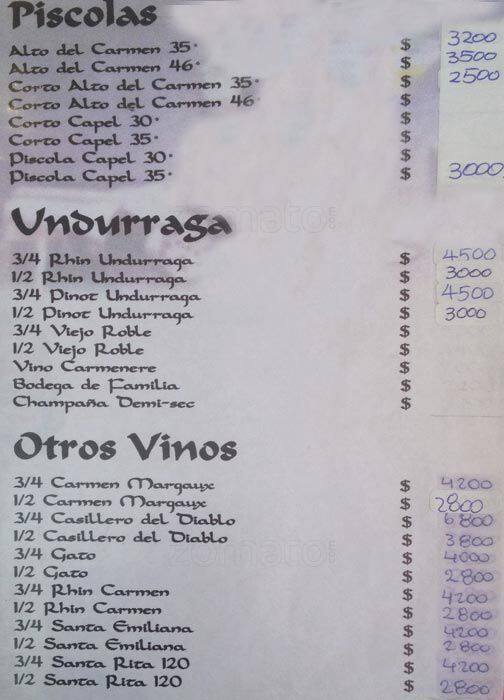 Piscolas
Alto del Carmen 35° $ 3200
Alto del Carmen 46° $ 3500
Corto Alto del Carmen 35° $ 2500
Corto Alto del Carmen 46 $
Corto Capel 30° $
Corto Capel 35° $
Piscola Capel 30° $
Piscola Capel 35° $ 3000
Undurraga
3/4 Rhin Undurraga $ 4500
1/2 Rhin Undurraga $ 3000
3/4 Pinot Undurraga $ 4500
1/2 Pinot Undurraga $ 3000
3/4 Viejo Roble $
1/2 Viejo Roble $
Vino Carmenere $
Bodega de Familia $
Champaña Demi-sec $
Otros Vinos
3/4 Carmen Margaux $ 4200
1/2 Carmen Margaux $ 2800
3/4 Casillero del Diablo $ 6800
1/2 Casillero del Diablo $ 3800
3/4 Gato $ 4000
1/2 Gato $ 2800
3/4 Rhin Carmen $ 4200
1/2 Rhin Carmen $ 2800
3/4 Santa Emiliana $ 4200
1/2 Santa Emiliana $ 2800
3/4 Santa Rita 120 $ 4200
1/2 Santa Rita 120 $ 2800